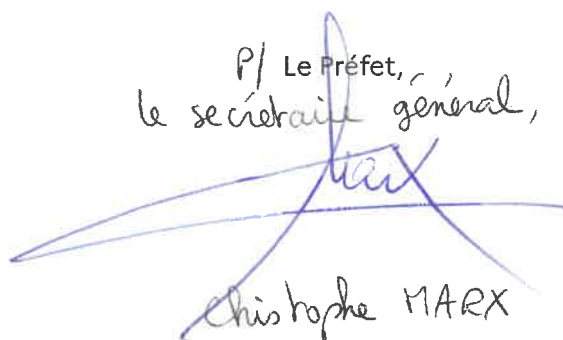 P/ Le Préfet,
le secrétaire général,
Marx
Christophe MARX